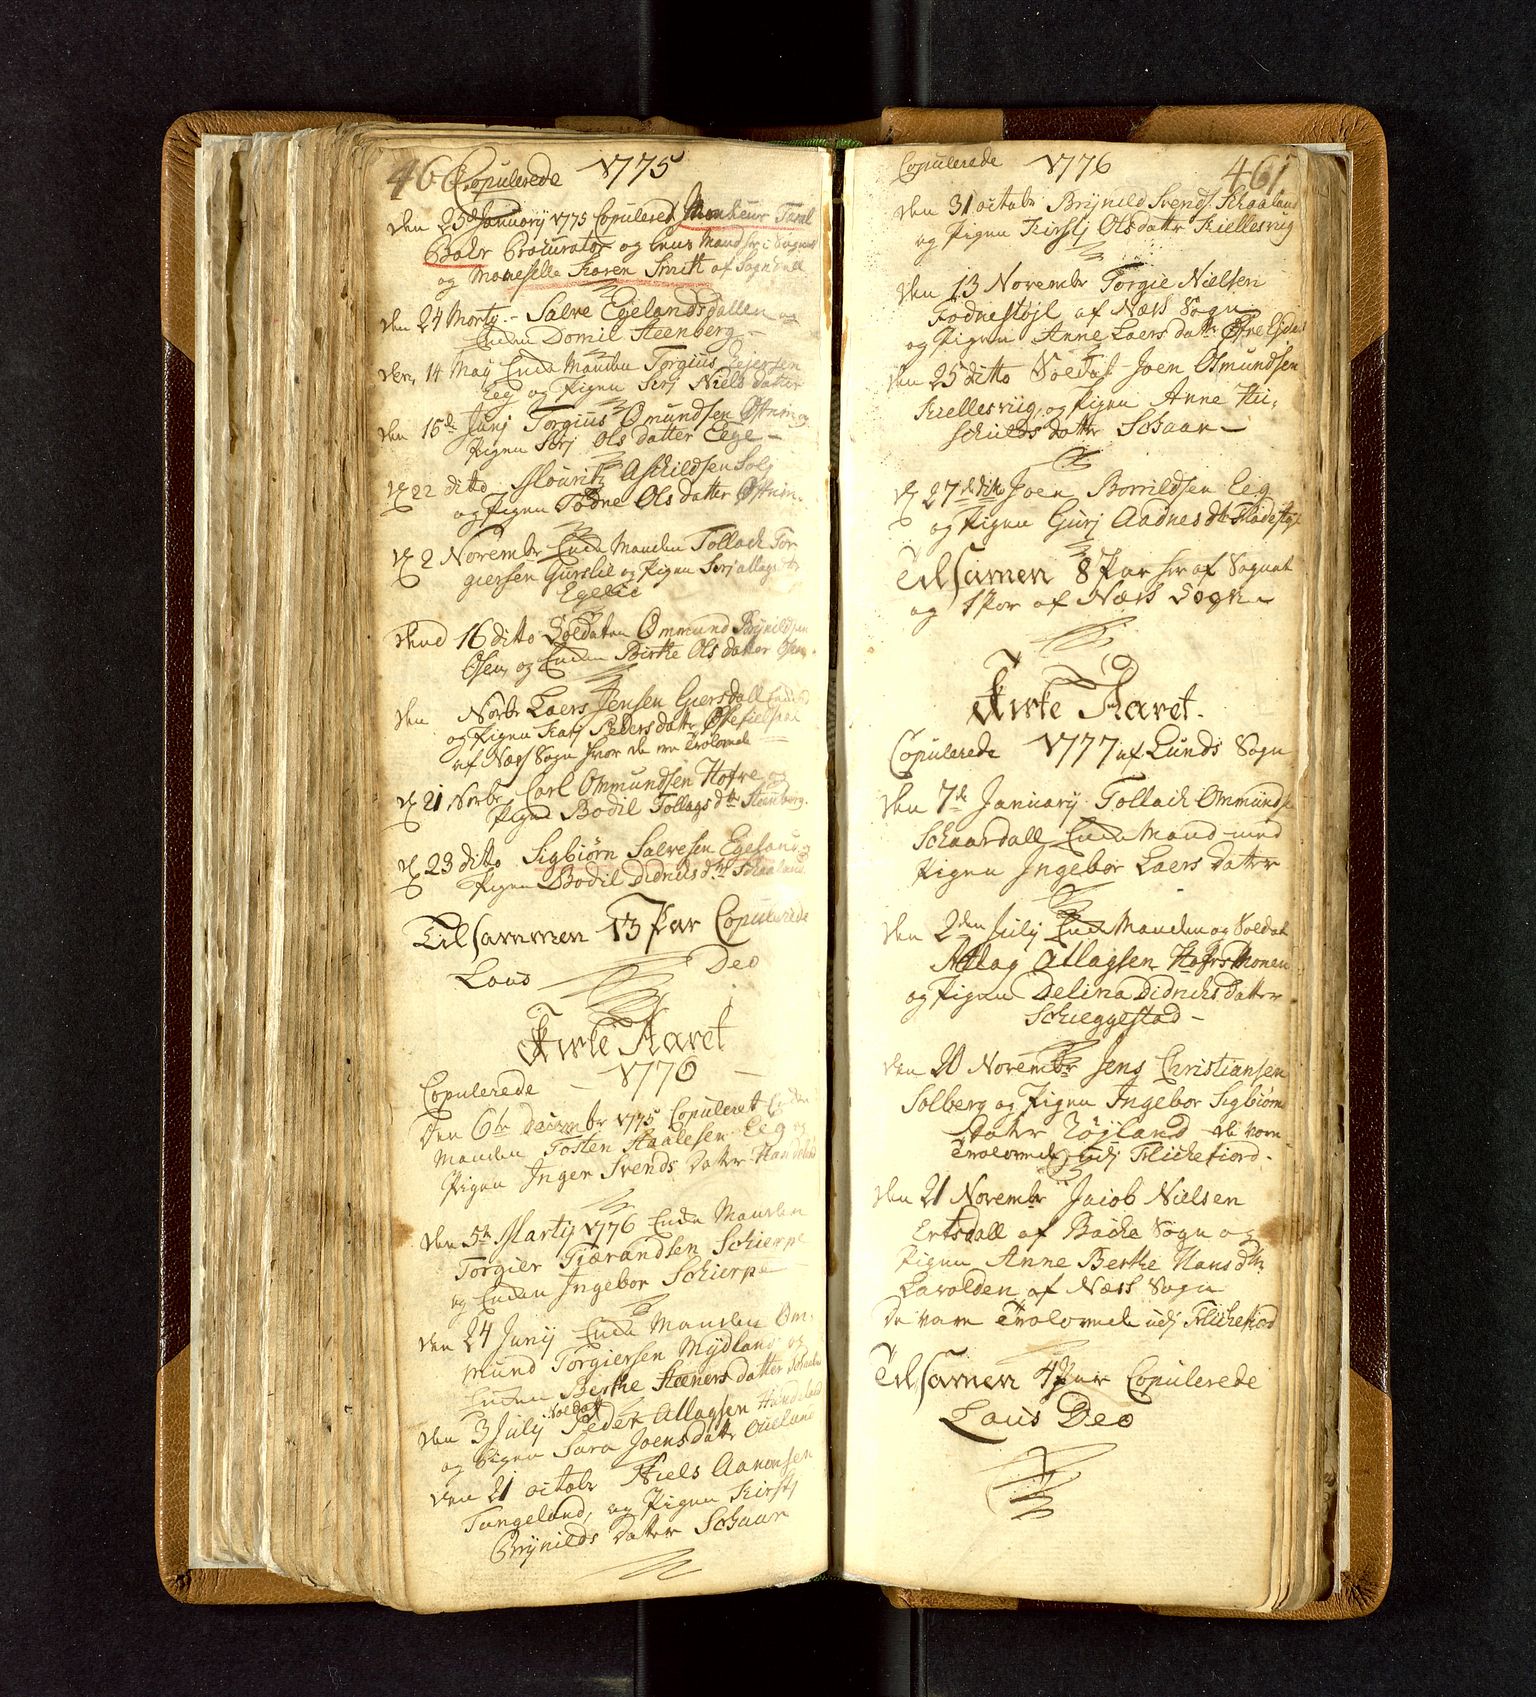 460 Copulerede 1775
Den 25de January 1775 Copuleret Monheur
Bahr Procurator og
og Maneselle Karen Smith af Sogndall
Den 24 Marty - Salve Egelandsdallen og
Enken Domil Steenberg -
Den 14 May Enke Manden Torgius
Eeg og Pigen Serj Niels datter
Den 15de Junj Torgius Omundsen
Pigen Serj Ols datter Eege -
D 22 ditto Mouritz Aschildsen Solj
og Pigen Todne Ols datter
D 2 Novembr Enke Manden Tollach Tor
giersen Gurslie og Pigen Serj
Egelie
Dend 16 ditto Soldaten Ommund Brynildsen
Osen, og Enken Birthe Ols datter Osen
Den Novbr Laers Jensen Giersdall
og Pigen Karj Peders datter
af Næss Sogn hvor de ere Trolovede
D 21 Novbr Carl Ommundsen Hofre og
Pigen Bodil Tollags dtr Steenberg.
D 23 ditto Sigbiørn Salvesen Egeland og
Pigen Bodil Didrichs dtr Schaaland
Tilsammen 13 Par Copulerede
Laus Deo
Kirke Aaret
Copulerede - 1776 -
Den 6te Decembr 1775 Copuleret Enke
Manden Tosten Staalesen Eeg og
Pigen Inger Svends Datter Handeland
Den 5te Martij 1776 Enke Manden
Torgier Tiærandsen Schierpe
og Enken Ingebor Schierpe
Den 24 Junij Enke Manden Om-
mund Torgiersen Mydland og
Enken Birthe Steeners datter
Den 3 July Soldat Peder Atlagsen Handeland
og Pigen Sara Joens datter Oueland
Den 21 octobr Niels Aanonsen
Tungeland, og Pigen Kirstj
Brynilds Datter Schaar
Copulerede 1776 461
Den 31 octobr Brynild Svends. Schaaland
og Pigen Kirstj Ols datter Kiellesviig
Den 13 Novembr Torgie Nielsen
Fodnestøjl af Næss Sogn
og Pigen Anne Laers datter
Den 25 ditto Soldat Joen Osmundsen
Kiellesviig, og Pigen Anne Hu-
schulds datter Schaar -
D 27de dito Joen Borrildsen Eeg
og Pigen Gurj Aadnes dtr
Tilsamen 8 Par her af Sognet
og 1 Par af Næss Sogn
Kirke Aaret.
Copulerede 1777 af Lunds Sogn
Den 7de January Tollach Ommunds
Schaardall Enke Mand med
Pigen Ingebor Laers Datter
Den 2den July Enke Manden og Soldat
Atlag Atlagsen Hofrsmonen
og Pigen Delina Didrichs Datter
Schieggestad -
Den 20 Novembr Jens Christiansen
Solberg og Pigen Ingebor Sigbiørns
Datter Røjland de vare
Trolovede udj Flichefiord.
Den 21 Novembr Jacob Nielsen
Ertsdall af Backe Sogn og
Pigen Anne Berthe Hans dtr
Lavolden af Næss Sogn
De vare Trolovede udj
Tilsamen 4 Par Copulerede
Laus Deo